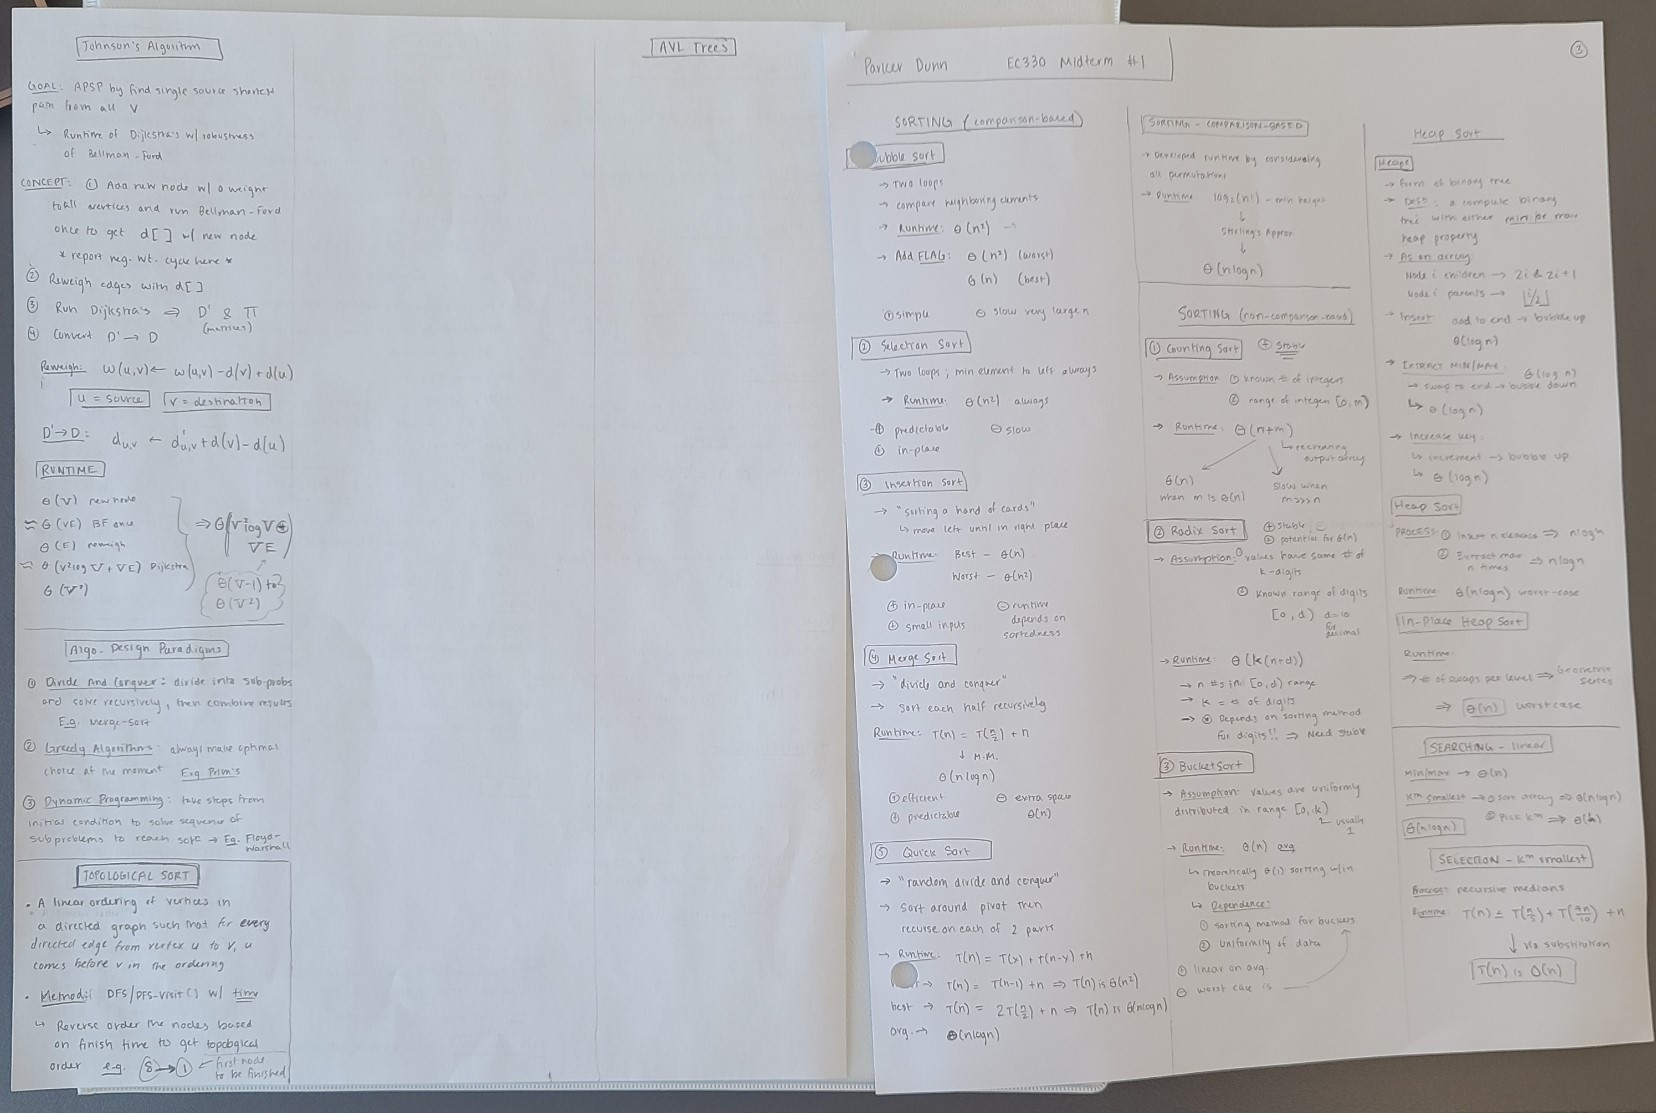 Johnson's Algorithm
GOAL: APSP by find single source shortest
path from all V
↳ Runtime of Dijkstra's w/ robustness
of Bellman-Ford
CONCEPT: ① Add new node w/ 0 weight
to all vertices and run Bellman-Ford
once to get d[] w/ new node
* report neg. wt. cycle here *
② Reweigh edges with d[]
③ Run Dijkstra's ⇒ D' & Π
(matrices)
④ Convert D' → D
Reweigh: w(u,v) ← w(u,v) - d(v) + d(u)
u = source v = destination
D'→D: d u,v ← d' u,v + d(v) - d(u)
RUNTIME
θ(V) new node
≈ θ(VE) BF once
θ(E) reweigh
≈ θ(V²log V + VE) Dijkstra
θ(V²)
⇒ θ(V²log V + VE)
θ(V-1) to
θ(V²)
Algo. Design Paradigms
① Divide And Conquer: divide into sub-probs
and solve recursively, then combine results
E.g. Merge-sort
② Greedy Algorithms: always make optimal
choice at the moment E.g. Prim's
③ Dynamic Programming: take steps from
initial condition to solve sequence of
subproblems to reach soln → Eg. Floyd-
Warshall
TOPOLOGICAL SORT
• A linear ordering of vertices in
a directed graph such that for every
directed edge from vertex u to v, u
comes before v in the ordering
• Method: DFS/DFS-Visit() w/ time
↳ Reverse order the nodes based
on finish time to get topological
order e.g. 8→1 ← first node
to be finished
AVL Trees
Parker Dunn EC330 Midterm #1
③
SORTING (comparison-based)
ubble Sort
→ Two loops
→ compare neighboring elements
→ Runtime: θ(n²)
→ Add FLAG: θ(n²) (worst)
θ(n) (best)
⊕ simple ⊖ slow very large n
② Selection Sort
→ Two loops; min element to left always
→ Runtime: θ(n²) always
⊕ predictable ⊖ slow
⊕ in-place
③ Insertion Sort
→ "sorting a hand of cards"
↳ move left until in right place
Runtime: Best - θ(n)
Worst - θ(n²)
⊕ in-place ⊖ runtime
⊕ small inputs depends on
sortedness
④ Merge Sort
→ "divide and conquer"
→ sort each half recursively
Runtime: T(n) = T(n/2) + n
↓ M.M.
θ(nlogn)
⊕ efficient ⊖ extra space
⊕ predictable θ(n)
⑤ Quick Sort
→ "random divide and conquer"
→ Sort around pivot then
recurse on each of 2 parts
→ Runtime: T(n) = T(x) + T(n-x) + n
→ T(n) = T(n-1) + n ⇒ T(n) is θ(n²)
best → T(n) = 2T(n/2) + n ⇒ T(n) is θ(nlogn)
avg. → θ(nlogn)
SORTING - COMPARISON-BASED
→ Developed runtime by considering
all permutations
→ Runtime log₂(n!) - min height
↓
Stirling's Approx
↓
θ(nlogn)
SORTING (non-comparison-based)
① Counting Sort ⊕ Stable
→ Assumption ① known # of integers
② range of integers [0,m)
→ Runtime: θ(n+m)
↳ recreating
output array
θ(n)
when m is θ(n)
Slow when
m>>>n
② Radix Sort ⊕ Stable
⊕ potential for θ(n)
→ Assumption: ① values have same # of
k-digits
② Known range of digits
[0,d) d=10
for
decimal
→ Runtime: θ(k(n+d))
→ n #s in [0,d) range
→ k = # of digits
→ ⊛ Depends on sorting method
for digits!! ⇒ Need stable
③ Bucket Sort
→ Assumption: values are uniformly
distributed in range [0,k)
usually
1
→ Runtime: θ(n) avg
↳ theoretically θ(1) sorting w/in
buckets
↳ Dependence:
① sorting method for buckets
② Uniformity of data
⊕ linear on avg.
⊖ worst case is
Heap Sort
Heaps
→ form of binary tree
→ Defn: a complete binary
tree with either min or max
heap property
→ As an array
Node i children → 2i & 2i+1
Node i parents → ⌊i/2⌋
→ Insert add to end → bubble up
θ(logn)
→ EXTRACT MIN/MAX: θ(log n)
→ swap to end → bubble down
↳ θ(logn)
→ Increase key:
↳ increment → bubble up
↳ θ(logn)
Heap Sort
PROCESS: ① Insert n elements ⇒ nlogn
② Extract max
n times ⇒ nlogn
Runtime: θ(nlogn) worst-case
In-Place Heap Sort
Runtime:
⇒ # of swaps per level ⇒ Geometric
series
⇒ θ(n) worst case
SEARCHING - linear
Min/max → θ(n)
Kth smallest → ① sort array ⇒ θ(nlogn)
② pick kth ⇒
θ(nlogn)
SELECTION - Kth smallest
Process: recursive medians
Runtime: T(n) ≤ T(n/5) + T(7n/10) + n
↓ via substitution
T(n) is O(n)